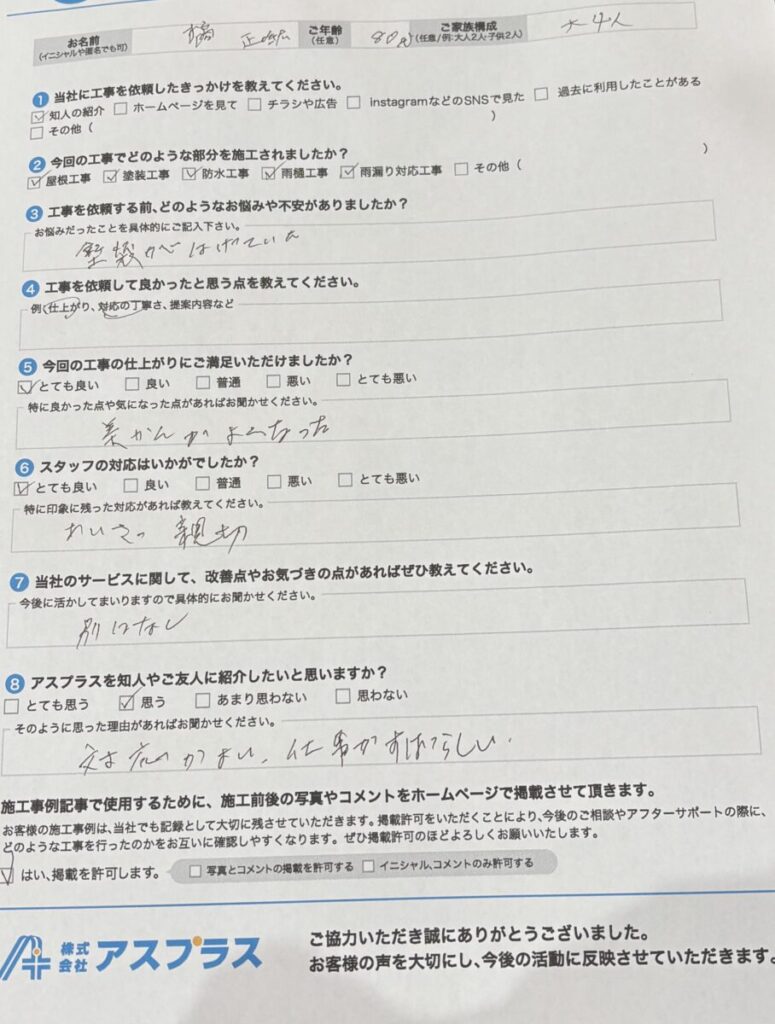 お名前 (イニシャルや匿名でも可) 橋 正 ご年齢 (任意) 80 ご家族構成 (任意/例:大人2人・子供2人) 大4人
1 当社に工事を依頼したきっかけを教えてください。
☑ 知人の紹介 □ ホームページを見て □ チラシや広告 □ instagramなどのSNSで見た □ 過去に利用したことがある
□ その他 ( )
2 今回の工事でどのような部分を施工されましたか?
☑ 屋根工事 ☑ 塗装工事 ☑ 防水工事 ☑ 雨樋工事 ☑ 雨漏り対応工事 □ その他 ( )
3 工事を依頼する前、どのようなお悩みや不安がありましたか?
お悩みだったことを具体的にご記入下さい。
塗装がはげていた
4 工事を依頼して良かったと思う点を教えてください。
例(仕上がり、対応の丁寧さ、提案内容など
5 今回の工事の仕上がりにご満足いただけましたか?
☑ とても良い □ 良い □ 普通 □ 悪い □ とても悪い
特に良かった点や気になった点があればお聞かせください。
美かんがよくなった
6 スタッフの対応はいかがでしたか?
☑ とても良い □ 良い □ 普通 □ 悪い □ とても悪い
特に印象に残った対応があれば教えてください。
あいさつ 親切
7 当社のサービスに関して、改善点やお気づきの点があればぜひ教えてください。
今後に活かしてまいりますので具体的にお聞かせください。
別になし
8 アスプラスを知人やご友人に紹介したいと思いますか?
□ とても思う ☑ 思う □ あまり思わない □ 思わない
そのように思った理由があればお聞かせください。
対応がよい、仕事がすばらしい.
施工事例記事で使用するために、施工前後の写真やコメントをホームページで掲載させて頂きます。
お客様の施工事例は、当社でも記録として大切に残させていただきます。掲載許可をいただくことにより、今後のご相談やアフターサポートの際に、
どのような工事を行ったのかをお互いに確認しやすくなります。ぜひ掲載許可のほどよろしくお願いいたします。
☑ はい、掲載を許可します。 □ 写真とコメントの掲載を許可する □ イニシャル、コメントのみ許可する
株式会社 アスプラス
ご協力いただき誠にありがとうございました。
お客様の声を大切にし、今後の活動に反映させていただきます。